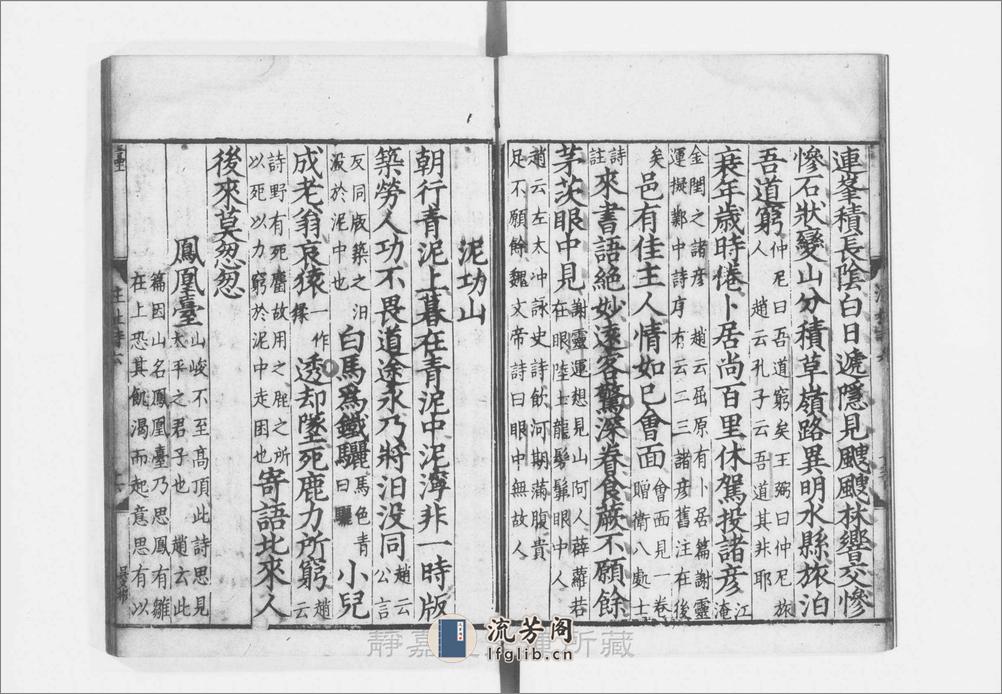 連峯積長陰白日遞隱見颼颼林響交慘
慘石狀變山分積草嶺路異明水縣旅泊
吾道窮仲尼曰吾道窮矣王弼曰仲尼旅人　趙云孔子云吾道其非耶
衰年歲時倦卜居尚百里休駕投諸彦江淹
金閨之諸彦　趙云屈原有卜居篇謝靈運擬鄴中詩序有云二三諸彦舊注在後
矣邑有佳主人情如已會面會面見一卷贈衛八處士
詩註來書語絕妙遠客驚深眷食蕨不願餘
茅茨眼中見謝靈運想見山阿人薜蘿若在眼陸士龍髣髴眼中人
趙云左太冲詠史詩飲河期滿腹貴足不願餘魏文帝詩曰眼中無故人
泥功山
朝行青泥上暮在青泥中泥濘非一時版
築勞人功不畏道途永乃將汨没同趙云公言
反同版築之汨没於泥中也白馬爲鐵驪馬色青曰驪小兒
成老翁哀猨一作猱透却墜死鹿力所窮趙云
詩野有死麕故用之鹿之所以死以力窮於泥中走困也寄語北來人
後來莫怱怱
鳳凰臺山峻不至高頂此詩思見太平之君子也　趙云此
篇因山名鳳凰臺乃思鳳有雛在上恐其飢渴而起意思有以
靜嘉堂文庫所藏
流芳阁
lfglib.cn